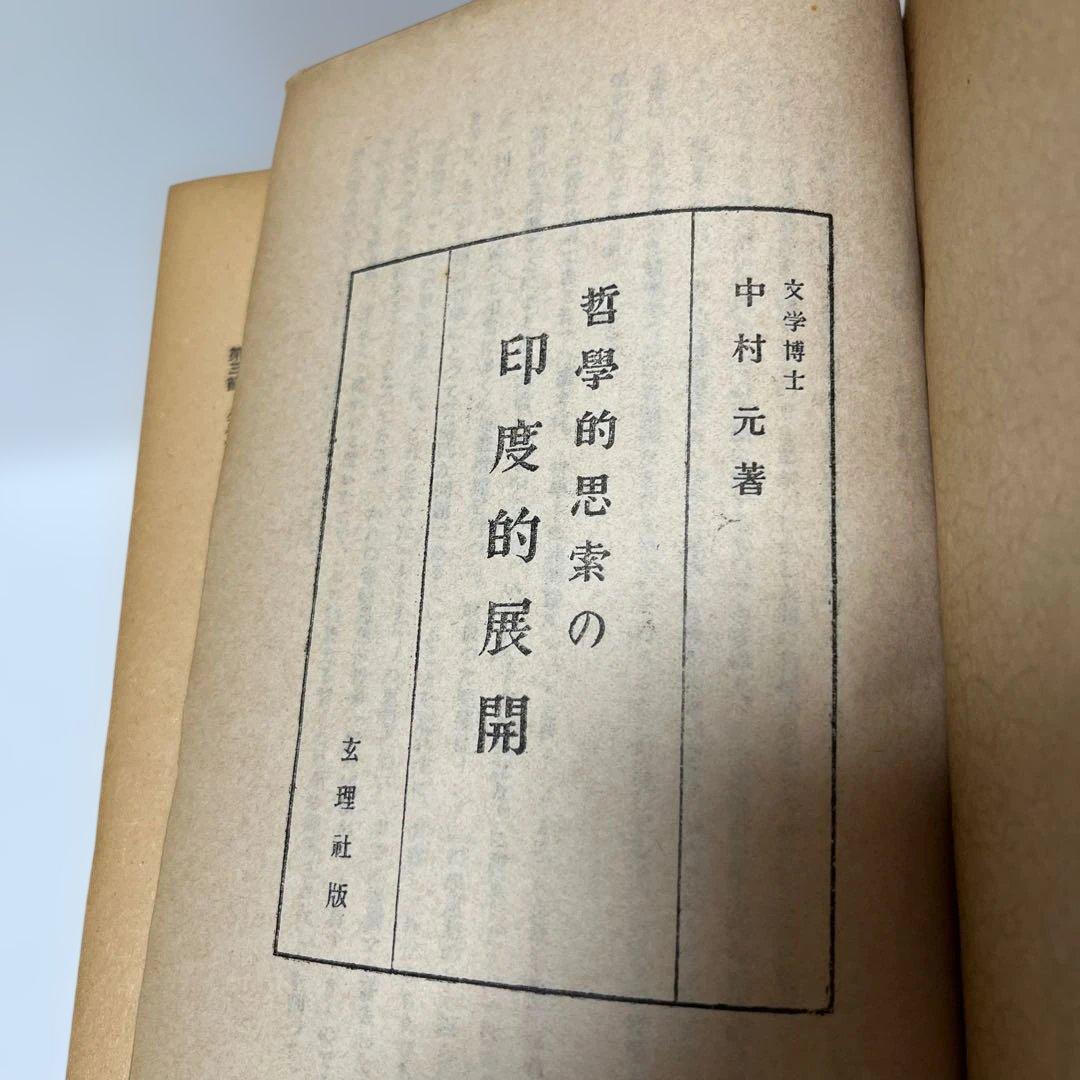 文学博士
中村元著
哲學的思索の
印度的展開
玄理社版
第三